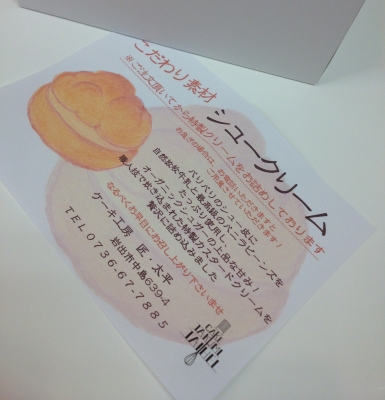 こだわり素材
シュークリーム
※ご注文頂いてから特製クリームをお詰めしております
お急ぎの場合は、お電話いただけますと
ご用意させていただきます！
パリパリのシュー皮に
自然放牧牛乳と最高級のバニラビーンズを
たっぷり使用し
オーガニックシュガーの上品な甘み！
職人技で炊き込まれた特製カスタードクリームを
贅沢に詰め込みました
なるべくお早目にお召し上がり下さいませ
ケーキ工房 匠・太平
岩出市中島639-4
TEL 0736-67-7885